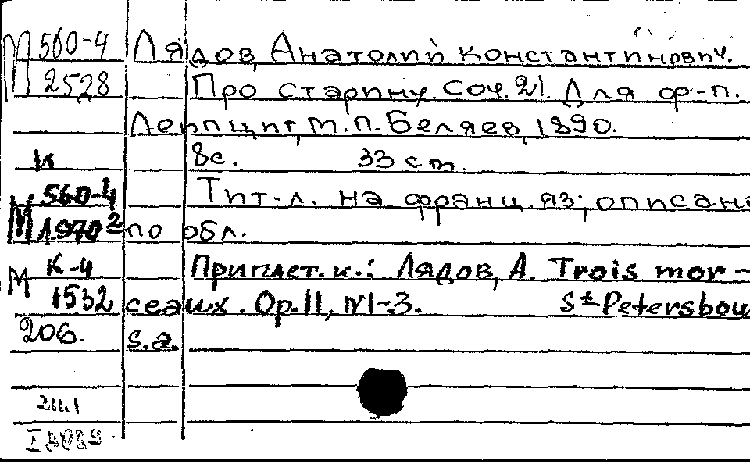 М 560-4 Лядов, Анатолий Константинович.
2528 Про старину Соч. 21. Для ф-п.
Лейпциг, М.П. Беляев, 1890.
и 8с. 33 cm.
560-4 Тит-л. на франц. яз; описание
М 1970² по обл.
М К-4 Приплет. к.: Лядов, А. Trois mor-
1532 ceaux. Op. 11, N1-3. St Petersbou
206. s.a.